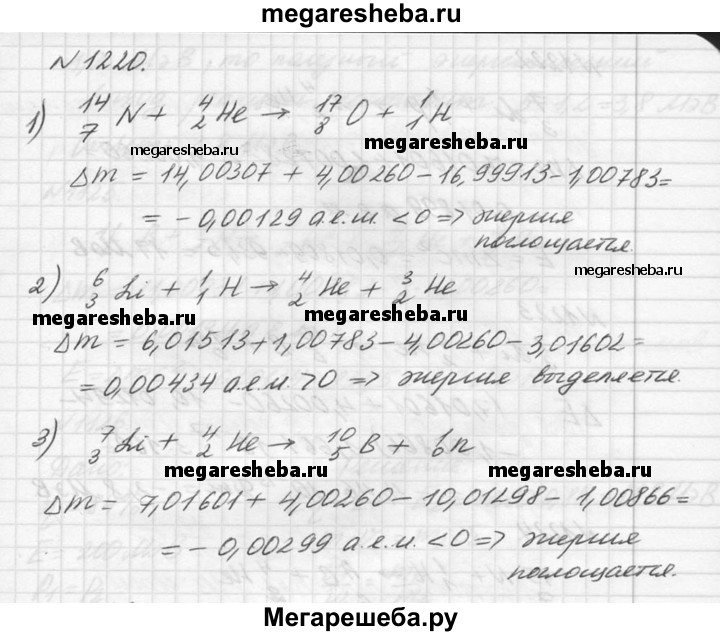 megaresheba.ru
N 1220.
1) ¹⁴₇N + ⁴₂He → ¹⁷₈O + ¹₁H
megaresheba.ru megaresheba.ru
Δm = 14,00307 + 4,00260 - 16,99913 - 1,00783 =
= - 0,00129 а.е.м. < 0 => энергия
поглощается.
megaresheba.ru
2) ⁶₃Li + ¹₁H → ⁴₂He + ³₂He
megaresheba.ru megaresheba.ru
Δm = 6,01513 + 1,00783 - 4,00260 - 3,01602 =
= 0,00434 а.е.м. > 0 => энергия выделяется.
3) ⁷₃Li + ⁴₂He → ¹⁰₅B + ¹₀n
megaresheba.ru megaresheba.ru
Δm = 7,01601 + 4,00260 - 10,01298 - 1,00866 =
= - 0,00299 а.е.м. < 0 => энергия
поглощается.
megaresheba.ru
Мегарешеба.ру